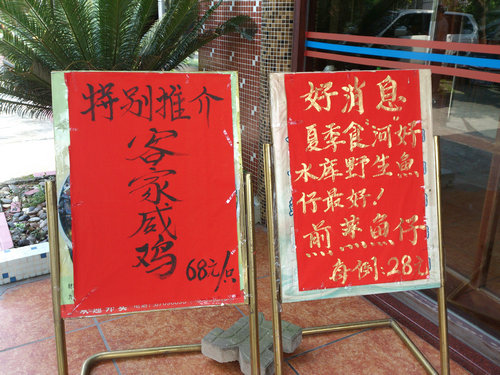 特别推介
客家咸鸡
68元/只
好消息
夏季食河好
水库野生魚
仔最好！
煎蒸魚仔
每例:28元